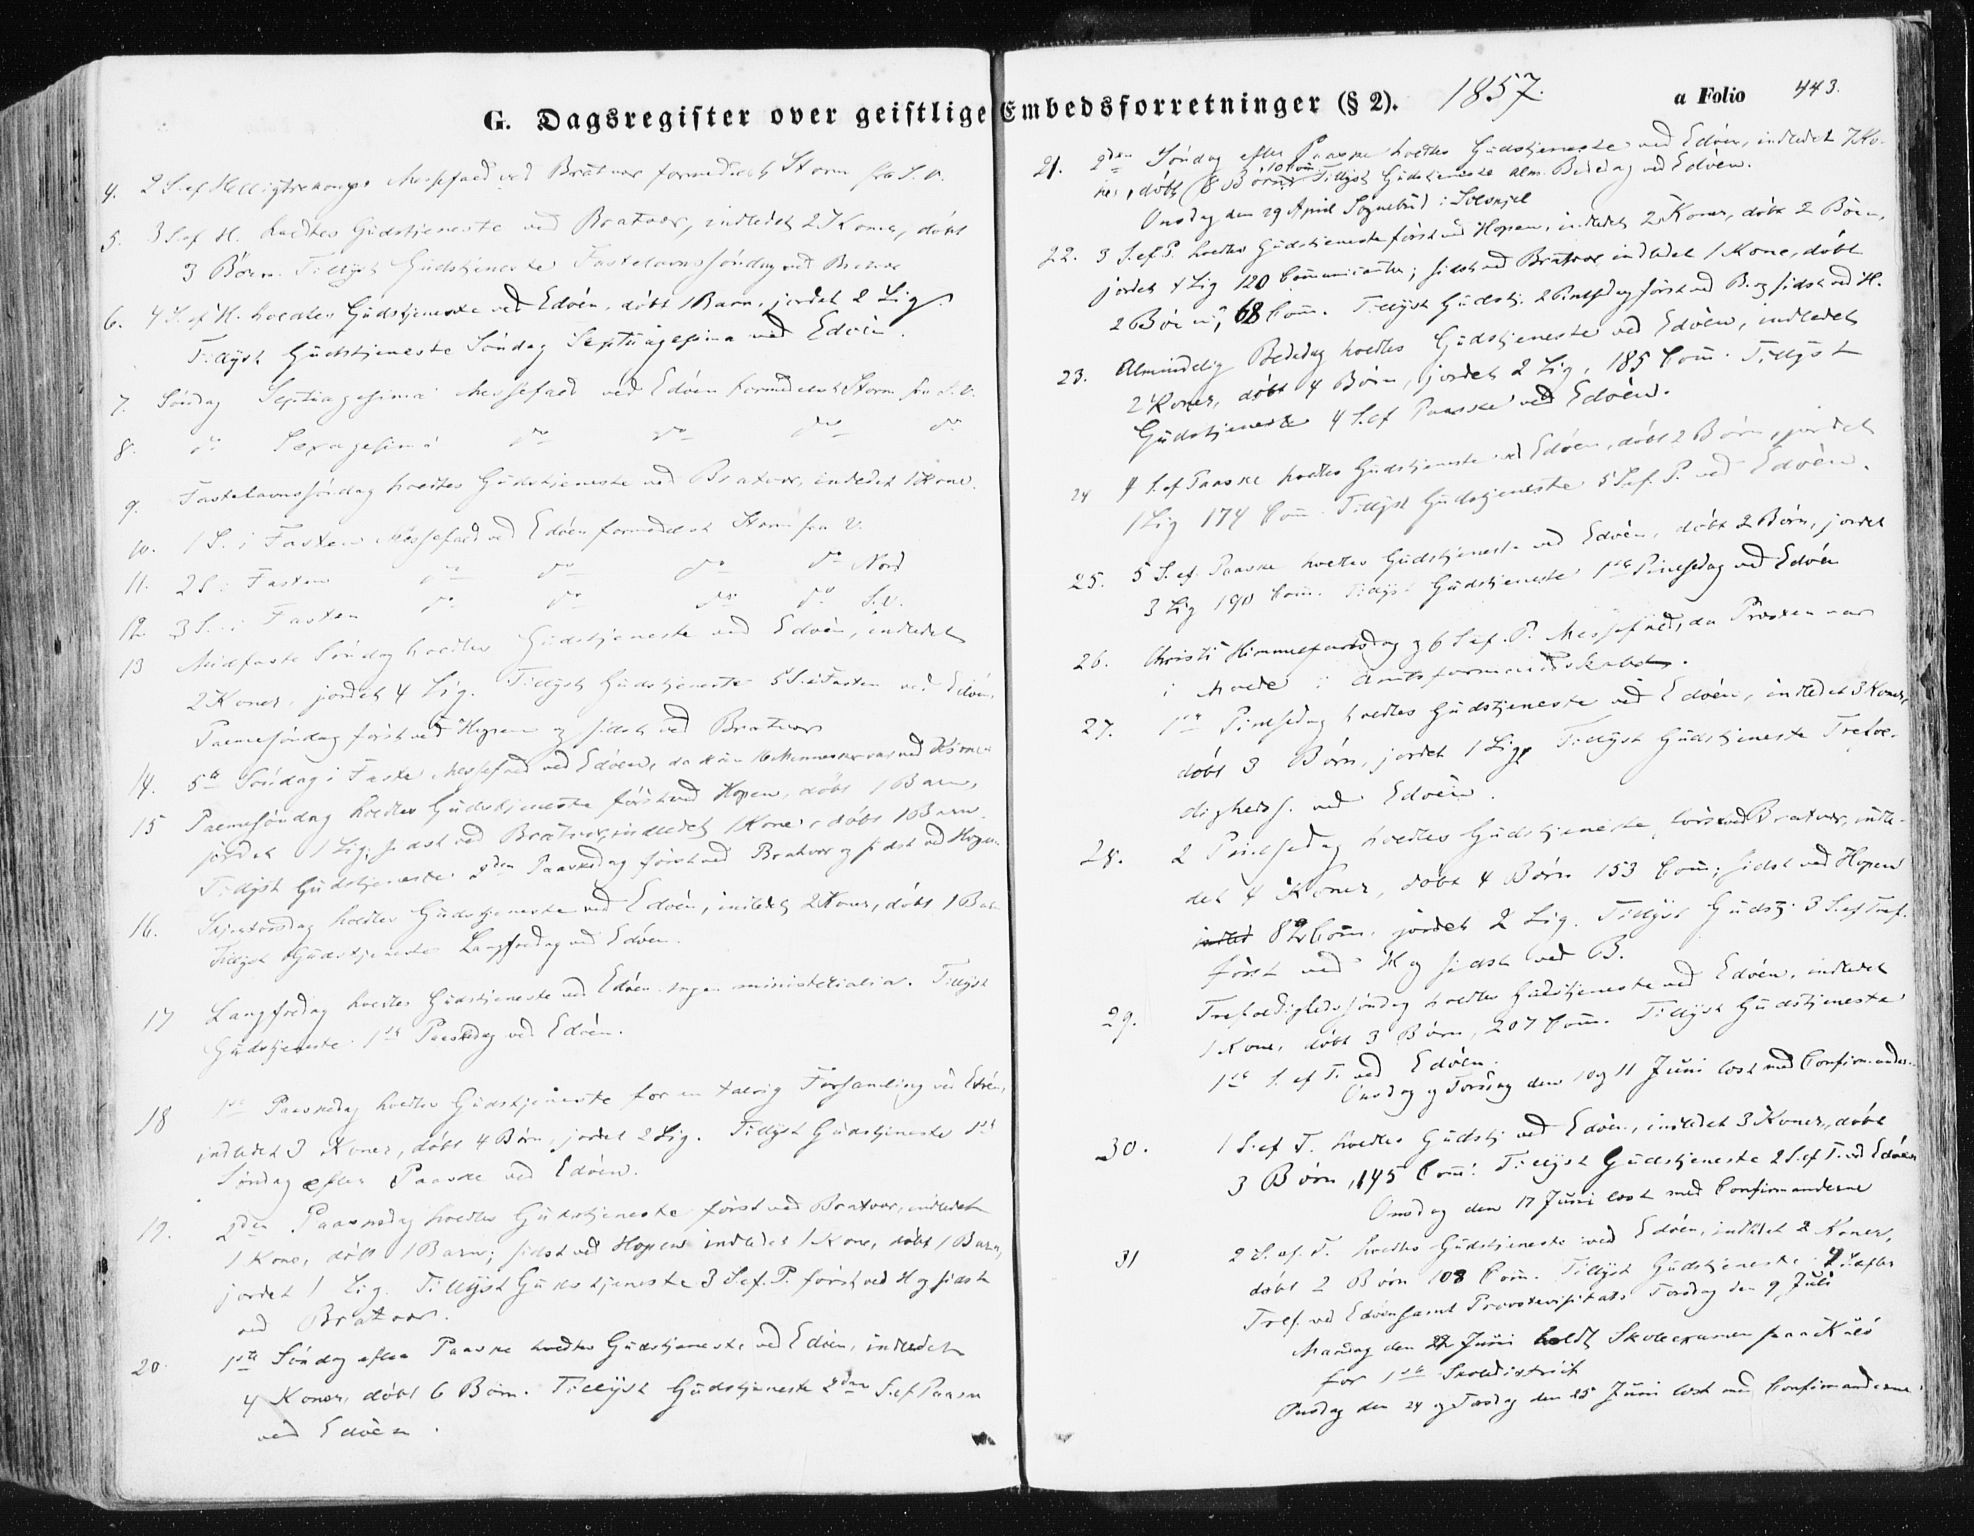 G. Dagsregister over geistlige Embedsforretninger (§ 2). 1857. a Folio 443.
4. 2 S. ef. Helligtrekonger Messefald ved Bratvær formedelst Storm fra S.V.
5. 3 S. ef H. holdtes Gudstjeneste ved Bratvær, indledet 2 Koner, døbt
3 Børn. Tillyst Gudstjeneste Fastelavnssøndag ved Bratvær
6. 4 S. ef H. holdtes Gudstjeneste ved Edøen, døbt 1 Barn, jordet 2 Lig.
Tillyst Gudstjeneste Søndag Septuagesima ved Edøen.
7. Søndag Septuagesima Messefald ved Edøen formedelst Storm fra S.V.
8. do Sexagesima do do do do
9. Fastelavnssøndag holdtes Gudstjeneste ved Bratvær, indledet 1 Kone.
10. 1 S. i Fasten Messefald ved Edøen formedelst Storm fra V.
11. 2 S. i Fasten do do do do Nord
12. 3 S. i Fasten do do do do S.V.
13 Midfaste Søndag holdtes Gudstjeneste ved Edøen, indledet
2 Koner, jordet 4 Lig. Tillyst Gudstjeneste 5 S. i Fasten ved Edøen,
Palmesøndag først ved Hopen og sidst ved Bratvær
14. 5te Søndag i Faste Messefald ved Edøen, da kun 16 Mennesker var ved Kirken
15 Palmesøndag holdtes Gudstjeneste først ved Hopen, døbt 1 Barn,
jordet 1 Lig; sidst ved Bratvær, indledet 1 Kone, døbt 1 Barn.
Tillyst Gudstjeneste 2den Paaskedag først ved Bratvær og sidst ved Hopen
16. Skjertorsdag holdtes Gudstjeneste ved Edøen, indledet 2 Koner, døbt 1 Barn
Tillyst Gudstjeneste Langfredag ved Edøen.
17 Langfredag holdtes Gudstjeneste ved Edøen. Ingen ministerialia. Tillyst
Gudstjeneste 1ste Paaskedag ved Edøen.
18 1ste Paaskedag holdtes Gudstjeneste for en talrig Forsamling ved Edøen,
indledet 3 Koner, døbt 4 Børn, jordet 2 Lig. Tillyst Gudstjeneste 1ste
Søndag efter Paaske ved Edøen.
19. 2den Paaskedag holdtes Gudstjeneste først ved Bratvær, indledet
1 Kone, døbt 1 Barn; sidst ved Hopen indledet 1 Kone, døbt 1 Barn,
jordet 1 Lig. Tillyst Gudstjeneste 3 S. ef. P. først ved H og sidst
ved Bratvær.
20. 1ste Søndag efter Paaske holdtes Gudstjeneste ved Edøen, indledet
4 Koner, døbt 6 Børn. Tillyst Gudstjeneste 2den S. ef Paaske
ved Edøen.
21. 2den Søndag efter Paaske holdtes Gudstjeneste ved Edøen, indledet 7 Ko-
ner, døbt 8 Børn Tillyst Gudstjeneste Alm. Bededag ved Edøen.
Onsdag den 29 April Sognebud i Solskjel
22. 3 S. ef P. holdtes Gudstjeneste først ved Hopen, indledet 2 Koner, døbt 2 Børn,
jordet 1 Lig 120 Communicanter; sidst ved Bratvær indledet 1 Kone, døbt
2 Børn, 68 Com. Tillyst Gudstj. 2 Pintsedag først ved B. og sidst ved H.
23. Almindelig Bededag holdtes Gudstjeneste ved Edøen, indledet
2 Koner, døbt 4 Børn, jordet 2 Lig, 185 Com. Tillyst
Gudstjeneste 4 S. ef Paaske ved Edøen.
24 4 S. ef Paaske holdtes Gudstjeneste ved Edøen, døbt 2 Børn, jordet
1 Lig 174 Com. Tillyst Gudstjeneste 5 S. ef. P. ved Edøen.
25. 5 S. ef. Paaske holdtes Gudstjeneste ved Edøen, døbt 2 Børn, jordet
3 Lig 190 Com. Tillyst Gudstjeneste 1ste Pintsedag ved Edøen
26. Christi Himmelfartsdag og 6 S. ef. P. Messefald, da Præsten var
i Molde i Amtsformandskabet.
27. 1ste Pintsedag holdtes Gudstjeneste ved Edøen, indledet 3 Koner,
døbt 3 Børn, jordet 1 Lig. Tillyst Gudstjeneste Trefol-
digheds S. ved Edøen.
28. 2 Pintsedag holdtes Gudstjeneste, først ved Bratvær, indle-
det 4 Koner, døbt 4 Børn 153 Com; sidst ved Hopen
indled 82 Com. jordet 2 Lig. Tillyst Gudstj. 3 S. ef Tref.
først ved H og sidst ved B.
29. Trefoldighedssøndag holdtes Gudstjeneste ved Edøen, indledet
1 Kone, døbt 3 Børn, 207 Com. Tillyst Gudstjeneste
1ste S. ef T. ved Edøen.
Onsdag og Torsdag den 10 og 11 Juni læst med Confirmander.
30. 1 S. ef T. holdtes Gudstj ved Edøen, indledet 3 Koner, døbt
3 Børn, 145 Com. Tillyst Gudstjeneste 2 S. ef T. ved Edøen
Onsdag den 17 Juni læst med Confirmanderne
31 2 S. ef. T. holdtes Gudstjeneste ved Edøen, indledet 2 Koner,
døbt 2 Børn 108 Com. Tillyst Gudstjeneste 4 S. efter
Tref. ved Edøen samt Provstevisitats Torsdag den 9 Juli
Mandag den 22 Juni holdt Skoleexamen paa Kulø
for 1ste Skoledistrict
Onsdag den 24 og Torsdag den 25 Juni læst med Confirmanderne.